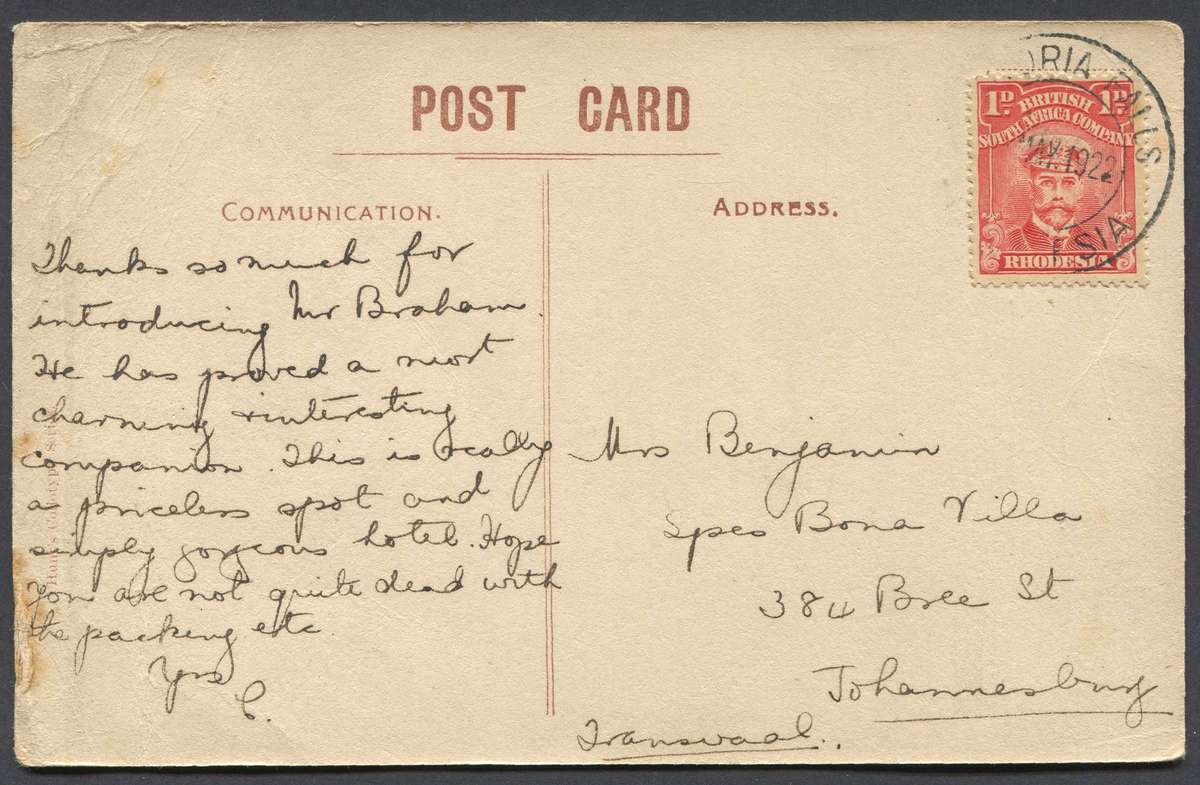 POST CARD
COMMUNICATION.
Thanks so much for
introducing Mr Braham.
He has proved a most
charming & interesting
companion. This is really
a priceless spot and
simply gorgeous hotel. Hope
you are not quite dead with
the packing etc
Yrs
C.
ADDRESS.
Mrs Benjamin
Spes Bona Villa
384 Bree St
Johannesburg
Transvaal.
1D. 1D.
BRITISH
SOUTH AFRICA COMPANY
RHODESIA
ORIA FALLS
MAY.1922
ESIA